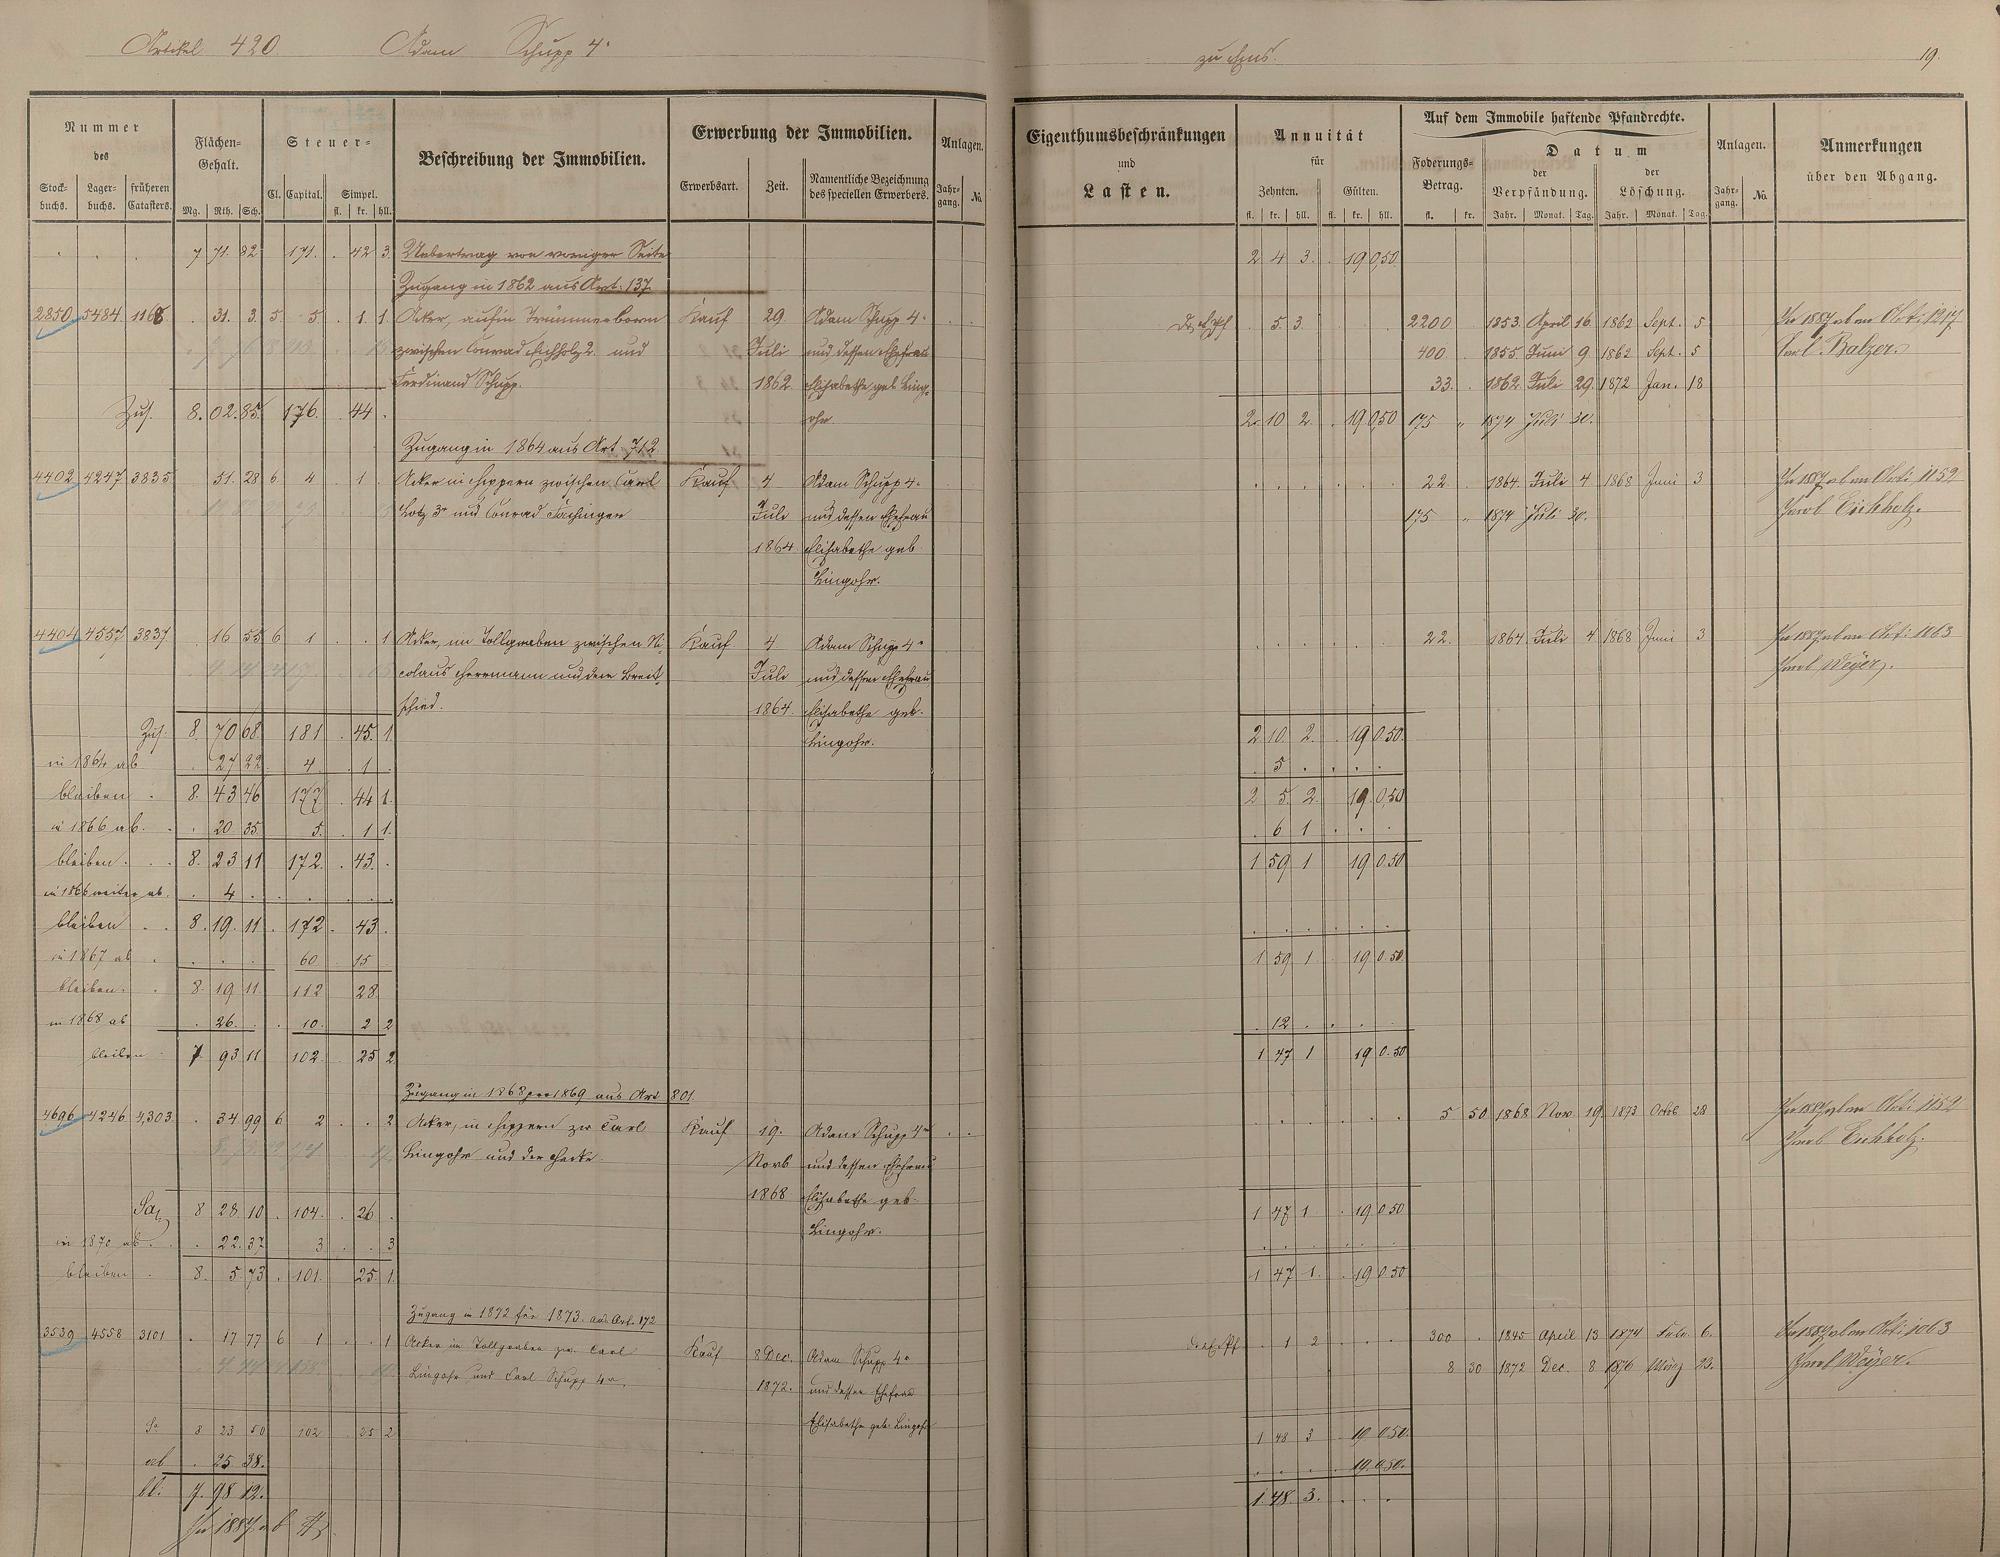 Artikel 420 Adam Schupp 4r
zu Ems. 19.
Nummer des
Stockbuchs. Lagerbuchs. früheren Catasters.
Flächen-Gehalt.
Mg. Rth. Sch.
Steuer-
Cl. Capital. Simpel.
fl. kr. hll.
Beschreibung der Immobilien.
Erwerbung der Immobilien.
Erwerbsart. Zeit. Namentliche Bezeichnung des speciellen Erwerbers.
Anlagen.
Jahrgang. No.
Eigenthumsbeschränkungen
und
Lasten.
Annuität
für
Zehnten. Gülten.
fl. kr. hll. fl. kr. hll.
Auf dem Immobile haftende Pfandrechte.
Foderungs-Betrag.
fl. kr.
Datum
der Verpfändung. der Löschung.
Jahr. Monat. Tag. Jahr. Monat. Tag.
Anlagen.
Jahrgang. No.
Anmerkungen
über den Abgang.
7 71 82 171 42 3 Uebertrag von voriger Seite 2 4 3 19 0,50
Zugang in 1862 aus Art: 137
2850 5484 1168 31 3 5 5 1 1 Acker, aufm Trümmerborn Kauf 29. Adam Schupp 4r 5 3 2200 1853 April 16 1862 Sept. 5 In 1887 ab in Art: 1217
zwischen Conrad Eichholz 2. und Juli und dessen Ehefrau 400 1855 Juni 9 1862 Sept. 5 Karl Balzer.
Ferdinand Schupp. 1862 Elisabetha geb. Ling- 33 1862 Juli 29 1872 Jan. 18
Zus. 8. 02. 85. 176. 44 ohr. 2 10 2 19 0,50 175 " 1874 Juli 30.
Zugang in 1864 aus Art 712
4402 4247 3835 51 28 6 4 1 Acker in Hippern zwischen Carl Kauf 4 Adam Schupp 4r 22 1864 Juli 4 1868 Juni 3 In 1887 ab in Art: 1152
Lotz 3r und Conrad Fachinger Juli und dessen Ehefrau 175 " 1874 Juli 30. Jacob Eichholz.
1864 Elisabetha geb
Lingohr.
4404 4557 3837 16 55 6 1 1 Acker, im Tollgraben zwischen Ni- Kauf 4 Adam Schupp 4r 22 1864 Juli 4 1868 Juni 3 In 1887 ab in Art: 1063
colaus Herrmann und dem Breit- Juli und dessen Ehefrau Jacob Weyer.
schied. 1864 Elisabetha geb.
Lingohr.
Zus. 8 70 68 181 45 1 2 10 2 19 0 50
in 1864 ab 27 22 4 1 5
bleiben 8 43 46 177 44 1 2 5 2 19 0,50
in 1866 ab 20 35 5 1 1 6 1
bleiben 8 23 11 172 43 1 59 1 19 0 50
in 1866 weiter ab 4
bleiben 8 19 11 172 43
in 1867 ab 60 15 1 59 1 19 0 50
bleiben 8 19 11 112 28
in 1868 ab 26 10 2 2 12
bleiben 7 93 11 102 25 2 1 47 1 19 0.50
Zugang in 1868 pro 1869 aus Art 801
4696 4246 4303 34 99 6 2 2 Acker, in Hippern zw Carl Kauf 19. Adam Schupp 4r 5 50 1868 Nov 19 1873 Octb 28 In 1887 ab in Art: 1152
Lingohr und der Hecke Novb und dessen Ehefrau Jacob Eichholz.
1868 Elisabetha geb.
Lingohr.
Sa 8 28 10 104 26 1 47 1 19 0 50
in 1870 ab 22 37 3 3
bleiben 8 5 73 101 25 1 1 47 1 19 0 50
Zugang in 1872 für 1873. aus Art. 172
3539 4558 3101 17 77 6 1 1 Acker im Tollgraben zw. Carl Kauf 8 Dec. Adam Schupp 4r 1 2 300 1845 April 13 1874 Febr. 6. In 1887 ab in Art: 1063
Lingohr und Carl Schupp 4r. 1872. und dessen Ehefrau 8 30 1872 Dec. 8 1876 März 23. Jacob Weyer.
Elisabetha geb. Lingohr
Sa 8 23 50 102 25 2 1 48 3 19 0 50
ab 25 38. 19. 0.50.
bl. 7. 98 12. 1. 48 3.
In 1887 ab